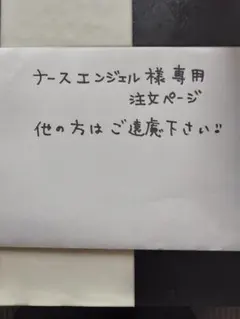 ナースエンジェル様専用
注文ページ
他の方はご遠慮下さい!!